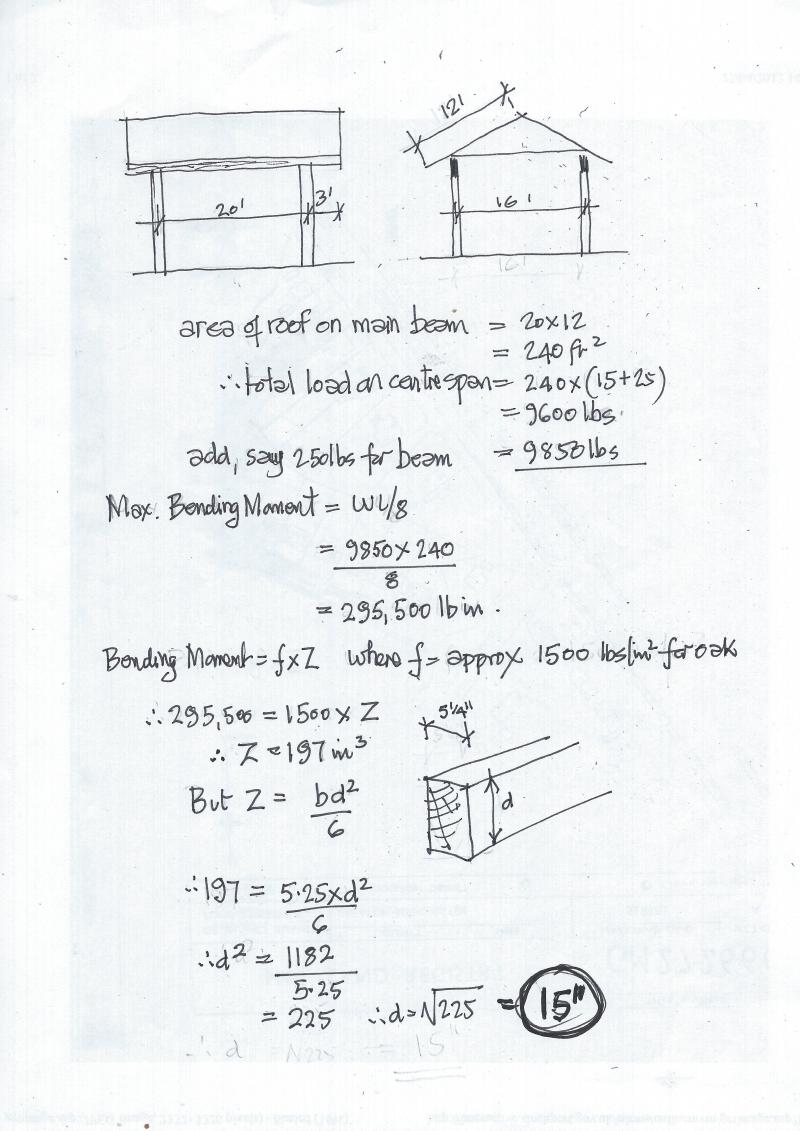 12'
20'
3'
16'
16'
area of roof on main beam = 20x12
= 240 ft²
∴ total load on centre span = 240x(15+25)
= 9600 lbs.
add, say 250lbs for beam = 9850 lbs
Max. Bending Moment = WL/8
= 9850 x 240
8
= 295,500 lb in.
Bending Moment = f x Z where f = approx 1500 lbs/in² for oak
∴ 295,500 = 1500 x Z
∴ Z = 197 in³
5¼"
But Z = bd²
6
d
∴ 197 = 5.25xd²
6
∴ d² = 1182
5.25
= 225 ∴ d = √225 = 15"
∴ d = √225 = 15"